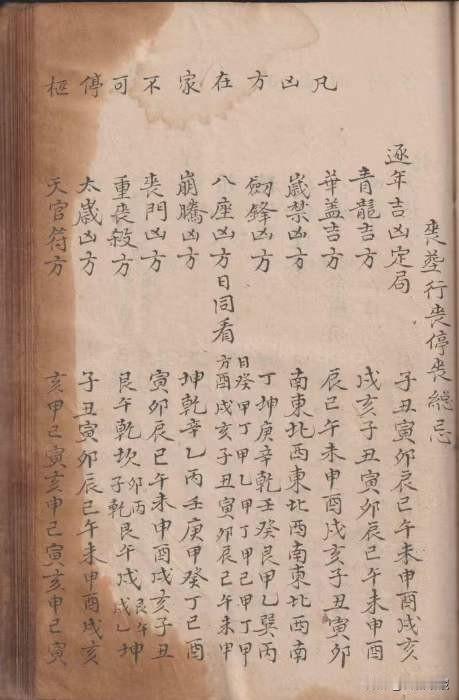 凡凶方在家不可停柩
喪塟行喪停喪總忌
逐年吉凶定局 子丑寅卯辰巳午未申酉戌亥
青龍吉方 戌亥子丑寅卯辰巳午未申酉
華盖吉方 辰巳午未申酉戌亥子丑寅卯
歲禁凶方 南東北西東北西南東北西南
劔鋒凶方 丁坤庚辛乾壬癸艮甲乙巽丙
八座凶方日同看 日癸甲丁甲
方酉戌亥子丑寅卯辰巳午未申
崩騰凶方 坤乾辛乙丙壬庚甲癸丁巳酉
喪門凶方 寅卯辰巳午未申酉戌亥子丑
重喪殺方 艮午乾坎
太歲凶方 子丑寅卯辰巳午未申酉戌亥
天官符方 亥申巳寅亥申巳寅亥申巳寅